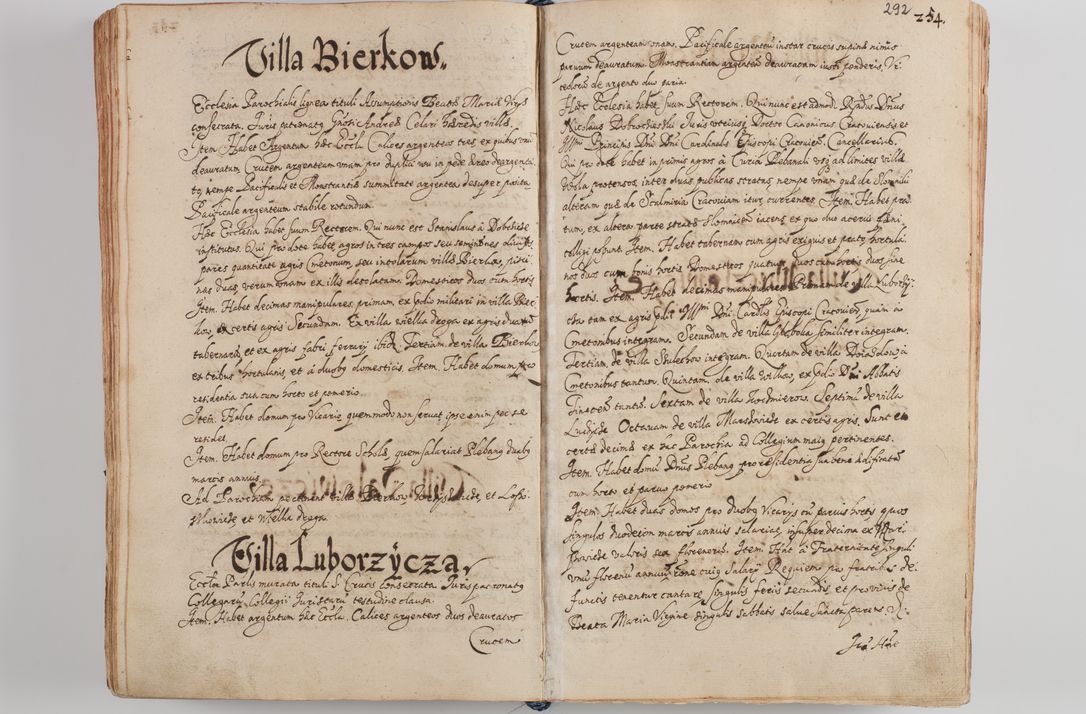 Villa Bierkow.
Ecclesia Parochialis lignea tituli Assumptionis Beatæ Mariæ Virgs
consecrata. Juris patronatq Gnosi Andreæ Celari hæredis villæ.
Item Habet Argentum hæc Eccla Calices argenteos tres, ex quibus unū
deauratum Crucem argenteam unam pro duplici usu in pede æreo deargenta
tq nempe Pacificalis et Monstrantiæ summitate argentea desuper posita
Pacificale argenteum stabile rotundum.
Hæc Ecclesia habet suum Rectorem. Qui nunc est Stanislaus à
institutus. Qui pro dote habet agros in tres campos seu semintnes
pares quantitate agris Cmetonum seu incolarum villæ Bierkow, pisci
nas duas, verum unam ex illis desolatam. Domesticos duos cum hortis
Item. Habet decimas manipulares, primam, ex prædio militari in villa Bier
kow, ex certis agris Secundam. Ex villa wiella droga ex agris duarū
tabernarū, et ex agris fabri ferrarij ibidē Tertiam. de villa Bierkow
ex tribus hortulanis, et à duobq domesticis. Item. Habet domum pro
residentia sua cum horto et pomerio.
Item. Habet domum pro Vicario, quem modo non servat ipse enim per se
residet.
Item. Habet domum pro Rectore Scholæ, quem salariat Plebanq duabq
marcis annuis.
Ad Parochiam pertinent villæ Bierkow, et
et Wiella droga.
Villa Luborzycza.
Eccla Parlis murata tituli S. Crucis consecrata. Juris patronatq
Collegarū Collegii Juristarū testudine clausa.
Item. Habet argentum hæc Eccla. Calices argenteos duos deauratos
Crucem
292
254.
Crucem argenteam unam. Pacificale argenteū instar crucis supinæ nimis
parvum deauratum. Monstrantiam argenteā deauratam iusti ponderis, Vr
ceolorū de argento duo paria.
Hæc Ecclesia habet suum Rectorem. Qui nunc est admodū Rndus Dnus
Nicolaus Dobrocieski Juris Doctor Canonicus Cracoviensis et
Illmi Principis Dni Dni Cardinalis Episcopi Cracovien. Cancellariuq.
Qui pro dote habet in primis agros à Curia Plebanali usq ad limites villæ
protensos, inter duas publicas stratas, nempe unam quæ de Slomniki
alteram quæ de Scalmiria Cracoviam itur, currentes. Item. Habet pra
tum, ex altera parte stratæ Slomnicen iacens ex quo duo acervi fæni
colligi possunt. Item. Habet tabernam cum agris exiguis et pratq hortula
nos duos cum bonis hortis Domesticos quatuor duos cum hortis duos sine
hortis. Item. Habet decimas manipulares Primam de villa Luborzy
cza tam ex agris prædii Illmi Dni Cardlis Episcopi Cracovien quam à
Cmetonibus integram. Secundam de villa similiter integram.
Tertiam de villa integram. Quartam de villa à
Cmetonibus tantum. Quintam, de villa Wilkow, ex prædio Dni Abbatis
Tinecen tantū. Sextam de villa Septimā de villa
Octavam de villa ex certis agris. Sunt et
certæ decimæ ex hac Parochia ad Collegium maiq pertinentes.
Item. Habet domū Dnus Plebanq pro residentia sua bene ædificatā
cum horto et parvo pomerio
Item. Habet duas domos pro duobq Vicarijs cū parvis hortq quos
singulos duodecim marcis annuis salariat, insuper decima ex
valoris sex florenorū. Item. Hāt à Fraternitate singuli
unū florenū annuū, roñe cuiq salarij Requiem pro fratribus de
functis tenentur cantare singulis ferijs secundis et pro vivis de
Beata Maria Virgine singulis sabbatis salve sancta parens. Vi